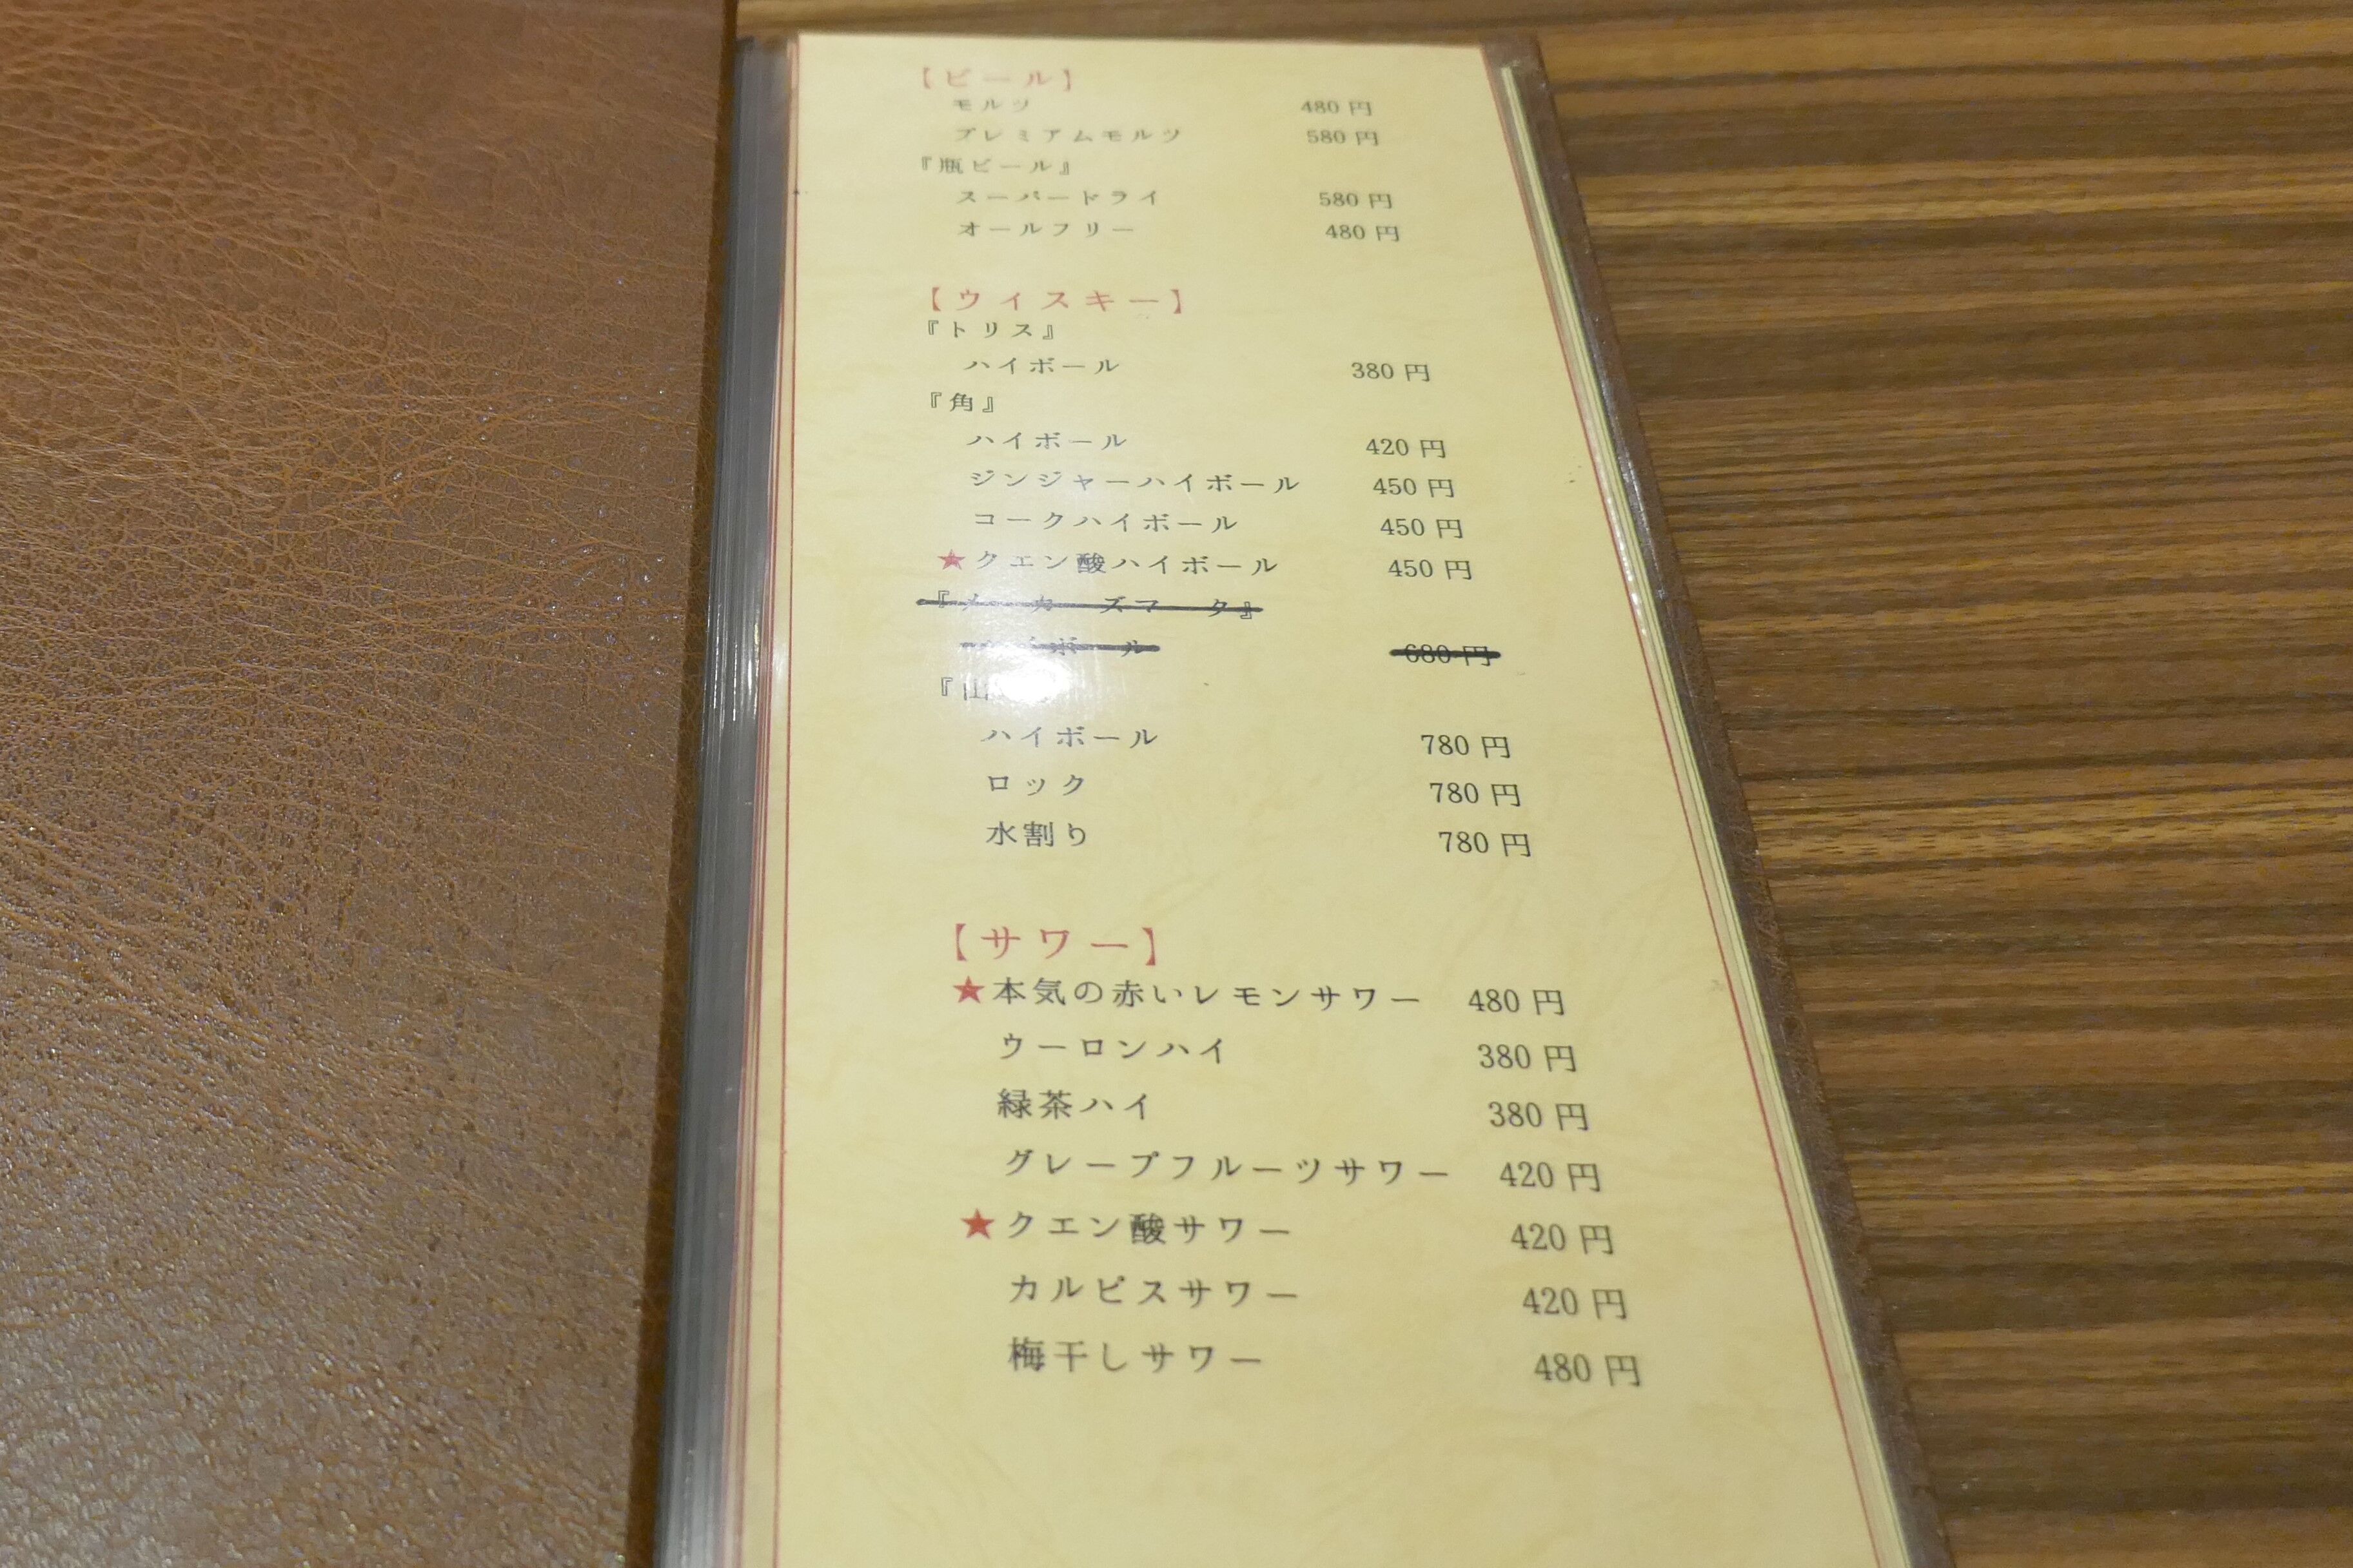 【ビール】
モルツ 480 円
プレミアムモルツ 580 円
『瓶ビール』
スーパードライ 580 円
オールフリー 480 円
【ウイスキー】
『トリス』
ハイボール 380 円
『角』
ハイボール 420 円
ジンジャーハイボール 450 円
コークハイボール 450 円
★クエン酸ハイボール 450 円
『メーカーズマーク』
ハイボール 680 円
『山
ハイボール 780 円
ロック 780 円
水割り 780 円
【サワー】
★本気の赤いレモンサワー 480 円
ウーロンハイ 380 円
緑茶ハイ 380 円
グレープフルーツサワー 420 円
★クエン酸サワー 420 円
カルピスサワー 420 円
梅干しサワー 480 円